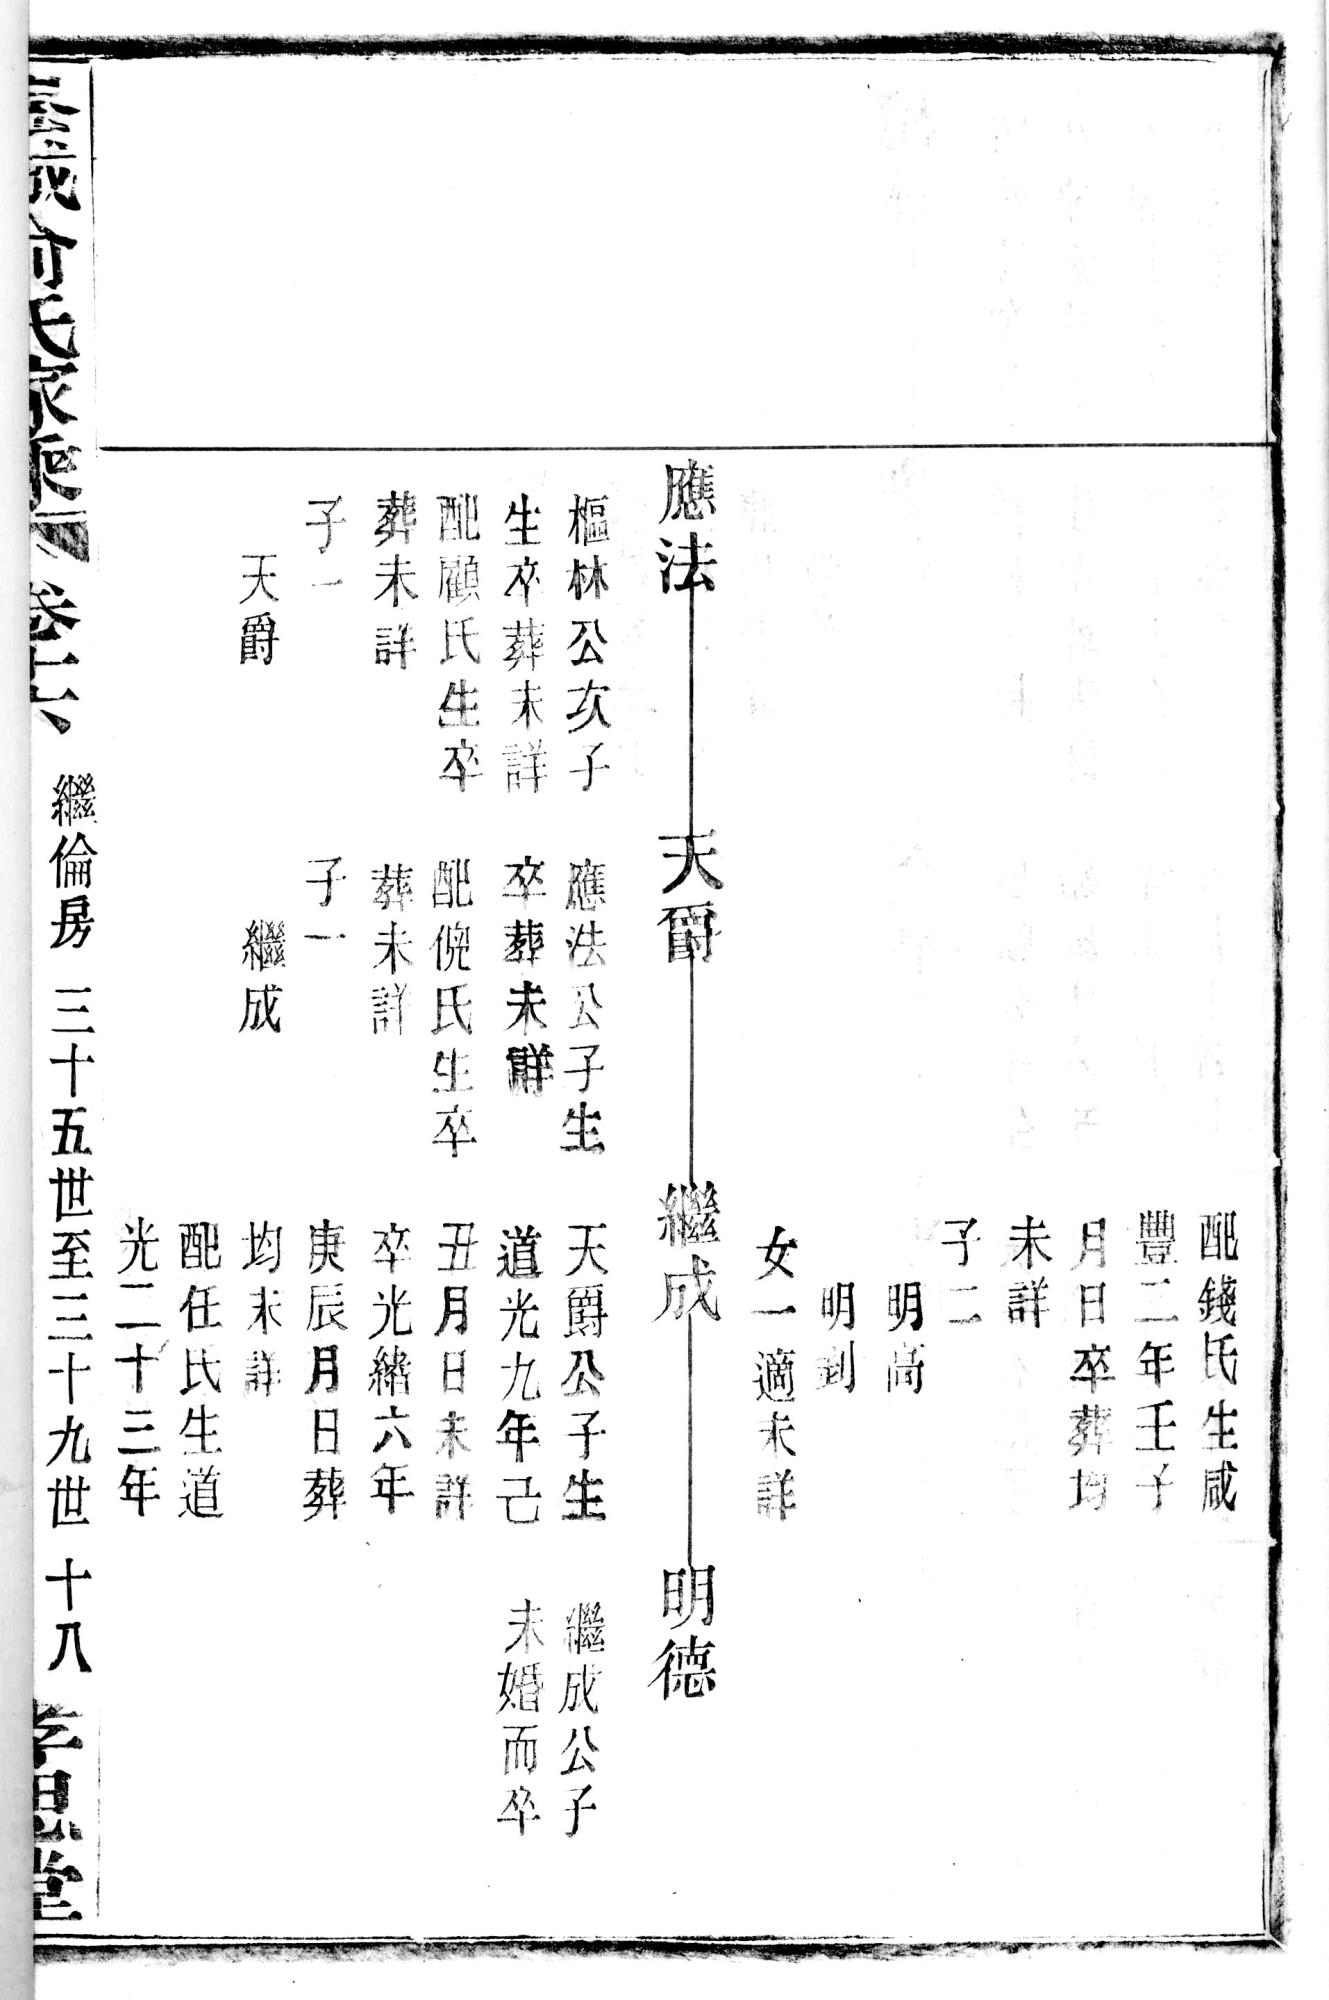 配錢氏生咸
豐二年壬子
月日卒葬均
未詳
子二
明高
明到
女一適未詳
應法 天爵 繼成 明德
樞林公次子
生卒葬未詳
配顧氏生卒
葬未詳
子一
天爵
應法公子生
卒葬未詳
配倪氏生卒
葬未詳
子一
繼成
天爵公子生
道光九年己
丑月日未詳
卒光緒六年
庚辰月日葬
均未詳
配任氏生道
光二十三年
繼成公子
未婚而卒
俞氏家乘 卷十六 繼倫房 三十五世至三十九世 十八 孝思堂